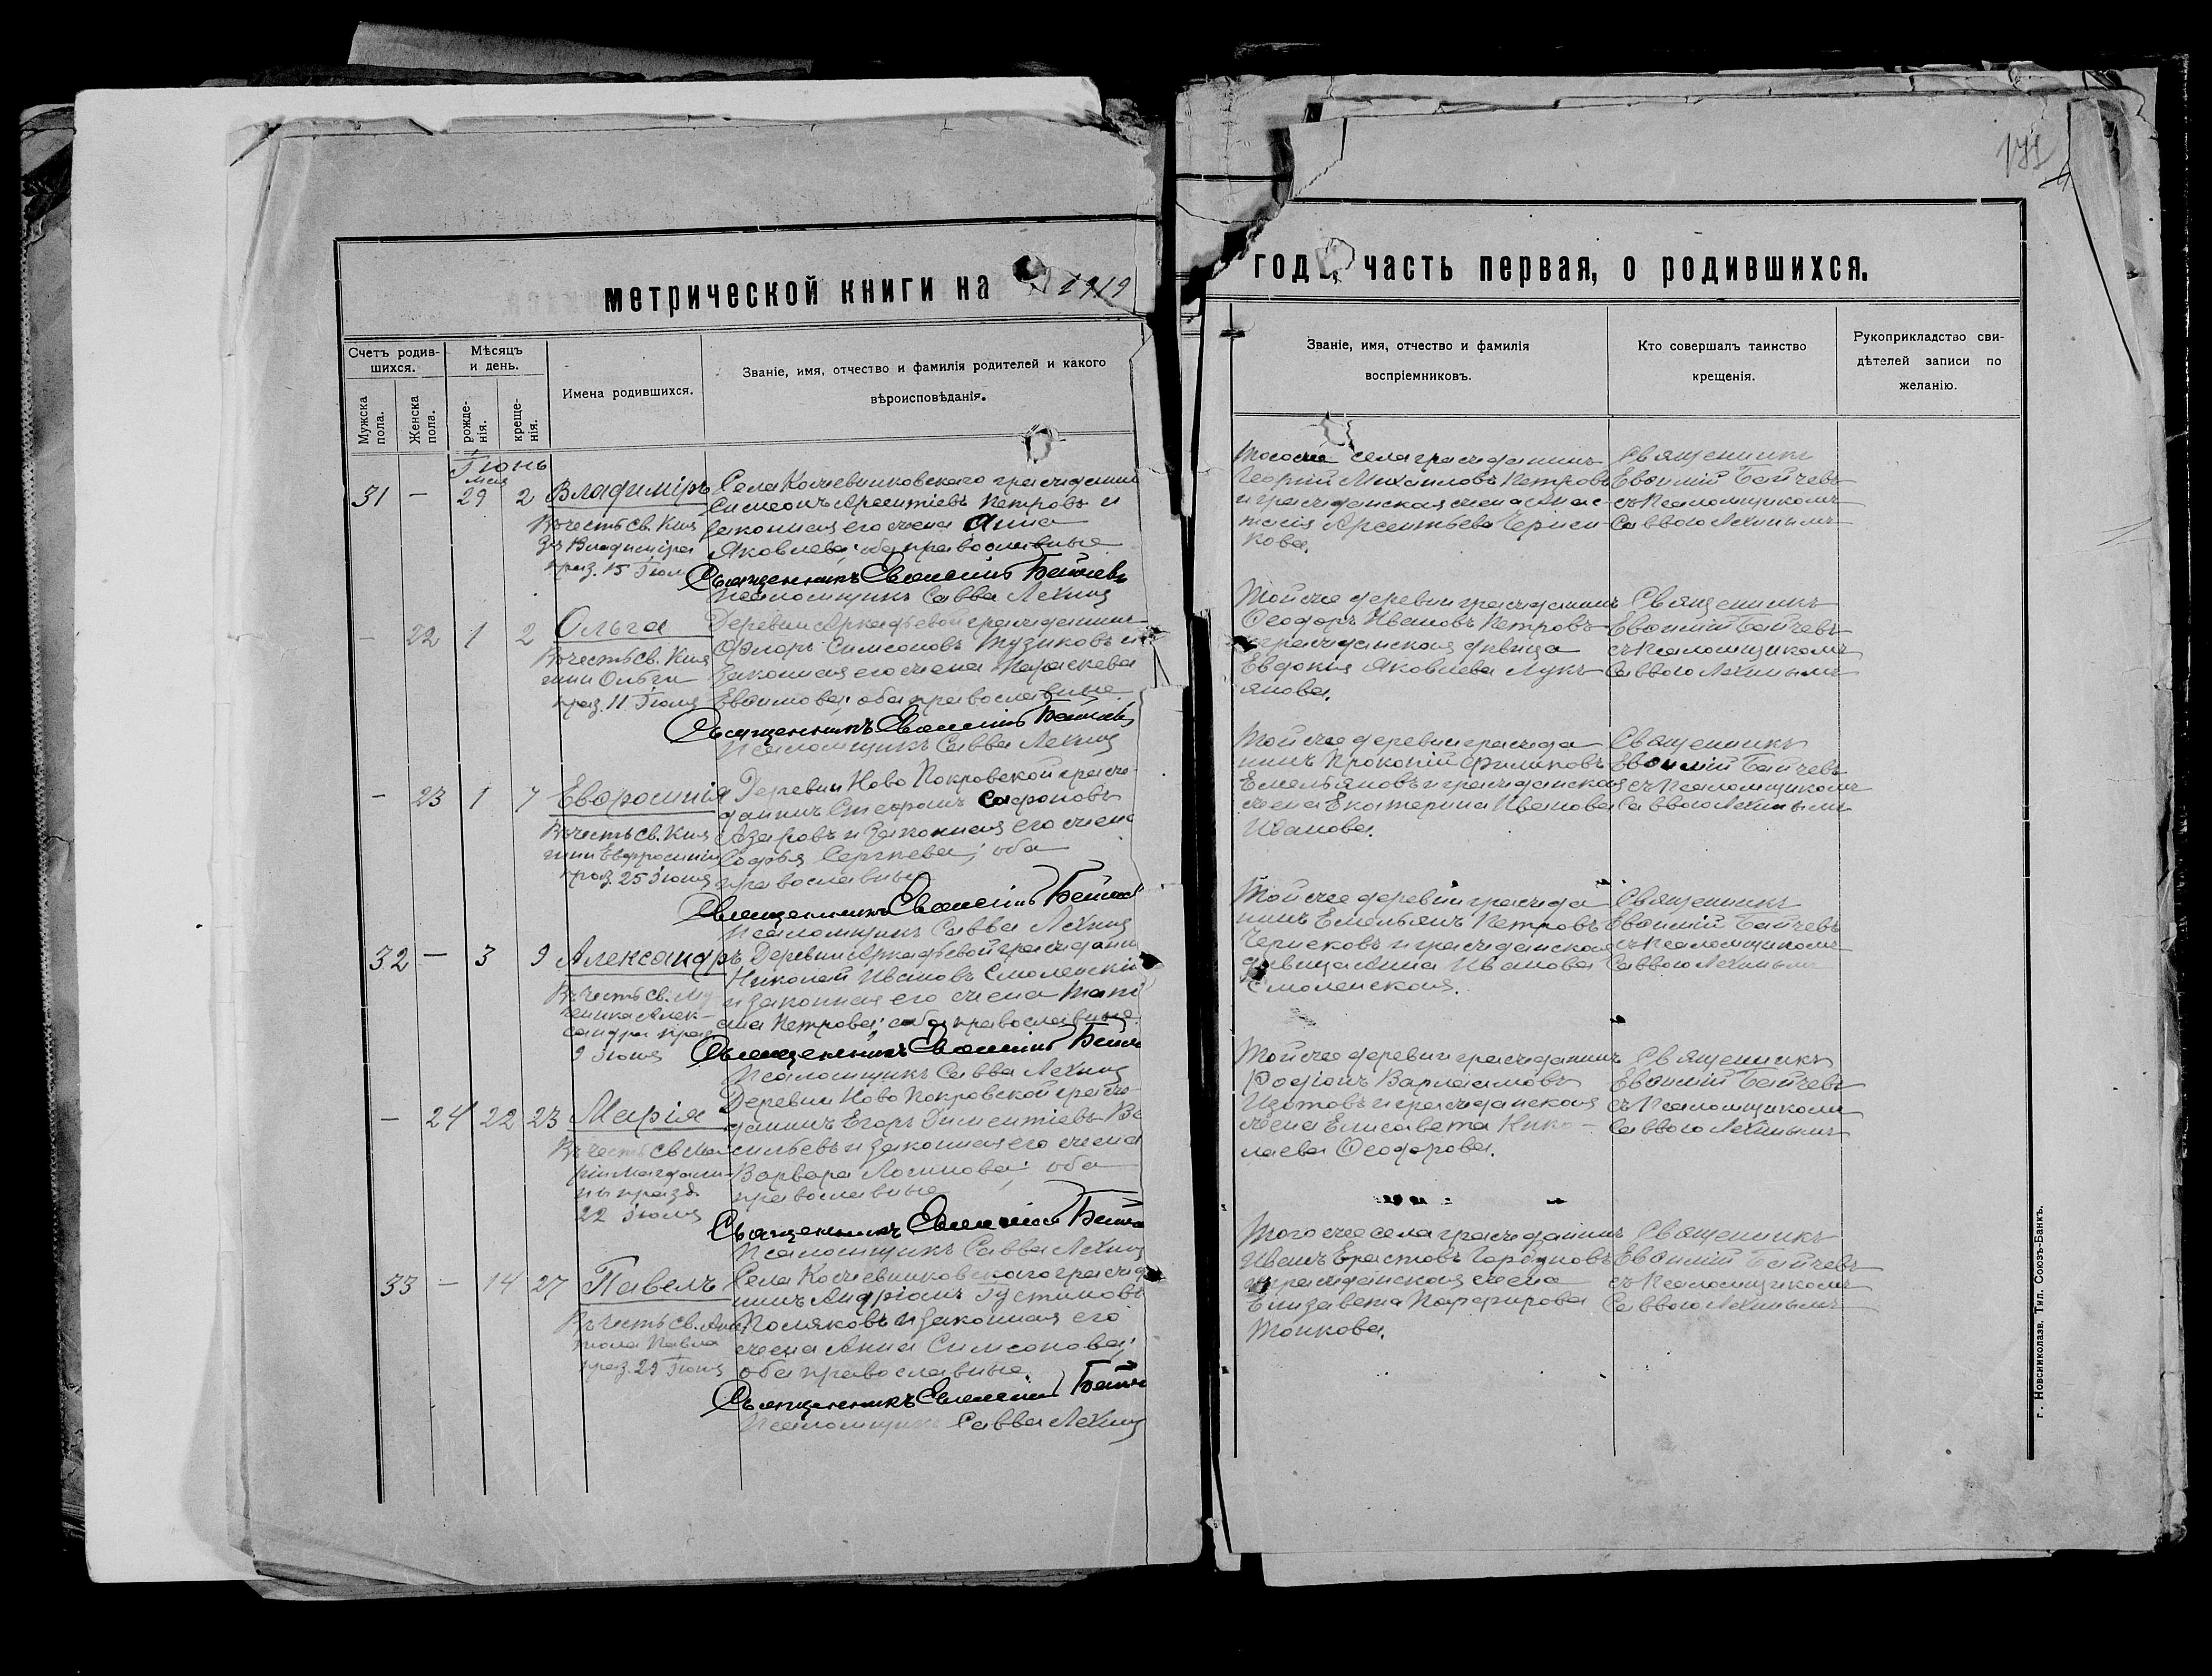 175
метрической книги на 1919
годъ часть первая, о родившихся.
Счетъ родив-
шихся.
Мѣсяцъ
и день.
Мужска
пола.
Женска
пола.
рожде-
нія.
креще-
нія.
Имена родившихся.
Званіе, имя, отчество и фамилія родителей и какого
вѣроисповѣданія.
Званіе, имя, отчество и фамилія
воспріемниковъ.
Кто совершалъ таинство
крещенія.
Рукоприкладство сви-
дѣтелей записи по
желанію.
Іюнь
мая
31 — 29 2 Владиміръ
Въ честь св. Кня
зя Владиміра
праз. 15 Іюл
Села Кожевниковского гражданин
Симеонъ Арсентіевъ Петровъ и
законная его жена Анна
Яковлева; оба православные
Священникъ Евөимій
Псаломщикъ Савва Лехниц
Того же села гражданинъ
Георгій Михаиловъ Петровъ
и гражданская жена Анас-
тасія Арсентьева Черни-
кова.
Священникъ
Евөимій
съ Псаломщикомъ
Саввою
— 22 1 2 Ольга
Въ честь св. Кня
гини Ольги
праз. 11 Іюля
Деревни Аркадьевой гражданинъ
Флоръ Симеоновъ Тузиковъ и
законная его жена Параскева
Евөимова; оба православные
Священникъ Евөимій
Псаломщикъ Савва Лехниц
Той же деревни гражданинъ
Өеодоръ Ивановъ Петровъ
гражданская дѣвица
Евдокия Яковлева Лукь-
янова.
Священникъ
Евөимій
съ Псаломщикомъ
Саввою
— 23 1 7 Евфросинія
Въ честь св. Кня
гини Евфросиніи
праз. 25 Іюня
Деревни Ново Покровской граж-
данинъ Софроновъ
Азаровъ и законная его жена
Софья Сергѣева; оба
православные
Священникъ Евөимій
Псаломщикъ Савва Лехниц
Той же деревни гражда
нинъ Прокопій Филиповъ
Емельяновъ и гражданская
жена Екатерина Иванова
Иванова.
Священникъ
Евөимій
съ Псаломщикомъ
Саввою
32 — 3 9 Александръ
Въ честь св. Му
ченика Алек-
сандра праз
9 Іюня
Деревни Аркадьевой граждани
Николай Ивановъ Смоленскій
и законная его жена Тать
яна Петрова; оба православные.
Священникъ Евөимій
Псаломщикъ Савва Лехниц
Той же деревни гражда
нинъ Емельянъ Петровъ
и гражданская
дѣвица Анна Иванова
Смоленская.
Священникъ
Евөимій
съ Псаломщикомъ
Саввою
— 24 22 23 Марія
Въ честь св Ма
ріи Магдали-
ны празд
22 Іюля
Деревни Ново Покровской граж-
данинъ Егоръ Диментіевъ Ва
сильевъ и законная его жена
Варвара Логинова; оба
православные
Священникъ Евөимій
Псаломщикъ Савва Лехниц
Той же деревни гражданинъ
Родіонъ Варлаамовъ
Изотовъ и гражданская
жена Елисавета Нико-
лаева Өеодорова.
Священникъ
Евөимій
съ Псаломщикомъ
Саввою
33 — 14 27 Павелъ
Въ честь св. Апо
тола Павла
праз. 29 Іюня
Села Кожевниковского гражда
нинъ Андріанъ Іустиновъ
Поляковъ и законная его
жена Анна Симеонова;
оба православные.
Священникъ Евөимій
Псаломщикъ Савва Лехниц
Того же села гражданинъ
Иванъ Ерастовъ Горбуновъ
гражданская жена
Елизавета Порфирова
Тонкова.
Священникъ
Евөимій
съ Псаломщикомъ
Саввою
г. Новониколаев. Тип. Союзъ-Банкъ.